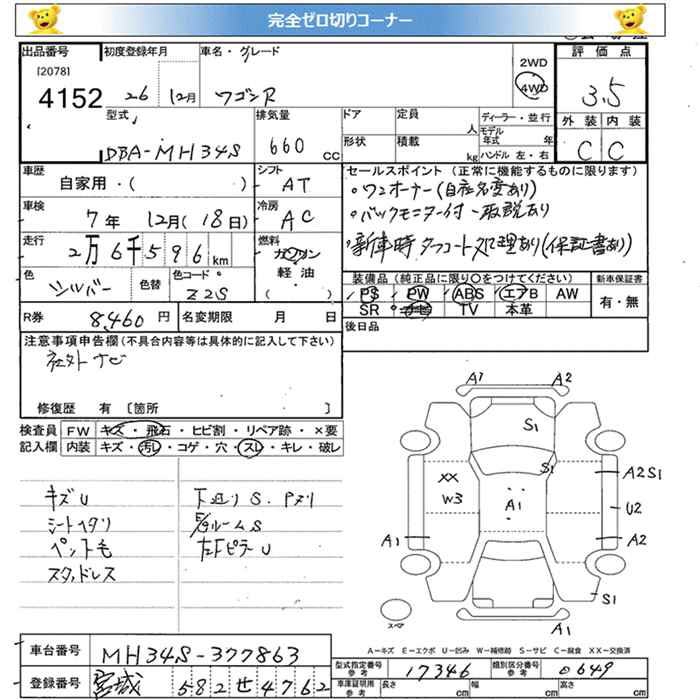 完全ゼロ切りコーナー
出品番号 初度登録年月 車名・グレード 評価点
[2078]
4152 26 12月 ワゴンR 2WD 4WD 3.5
型式 排気量 ドア 定員 人 ディーラー・並行 外装 内装
DBA-MH34S 660 cc 形状 積載 kg モデル年式 年 ハンドル 左・右 C C
車歴 自家用・( ) シフト AT セールスポイント (正常に機能するものに限ります)
。ワンオーナー(自社名変あり)
車検 7年 12月(18日) 冷房 AC
。バックモニター付 一取説あり
走行 2万6千596km 燃料 ガソリン 軽油 ( )
。新車時 タフコート処理あり(保証書あり)
色 シルバー 色替 色コード Z2S
装備品 (純正品に限り〇をつけてください) 新車保証書
PS PW ABS エアB AW 有・無
SR ナビ TV 本革
R券 8,460円 名変期限 月 日
後日品
注意事項申告欄(不具合内容等は具体的に記入して下さい)
社外ナビ
修復歴 有 [箇所 ]
検査員 FW キズ・飛石・ヒビ割・リペア跡・×要
記入欄 内装 キズ・汚レ・コゲ・穴・スレ・キレ・破レ
キズU
シートヘタリ
ペット毛
スタッドレス
下廻りS.Pヌリ
E/gルームS
左FピラーU
A1 A2
S1
S1
XX
W3
A1
A2S1
U2
A1 A2
S1
スペア
A1
A-キズ E-エクボ U-凹み W-補修跡 S-サビ C-腐食 XX-交換済
車台番号 MH34S-377863
登録番号 宮城 582 せ 4762
型式指定番号 参考 17346 類別区分番号 参考 0649
車庫証明用 参考 長さ cm 幅 cm 高さ cm